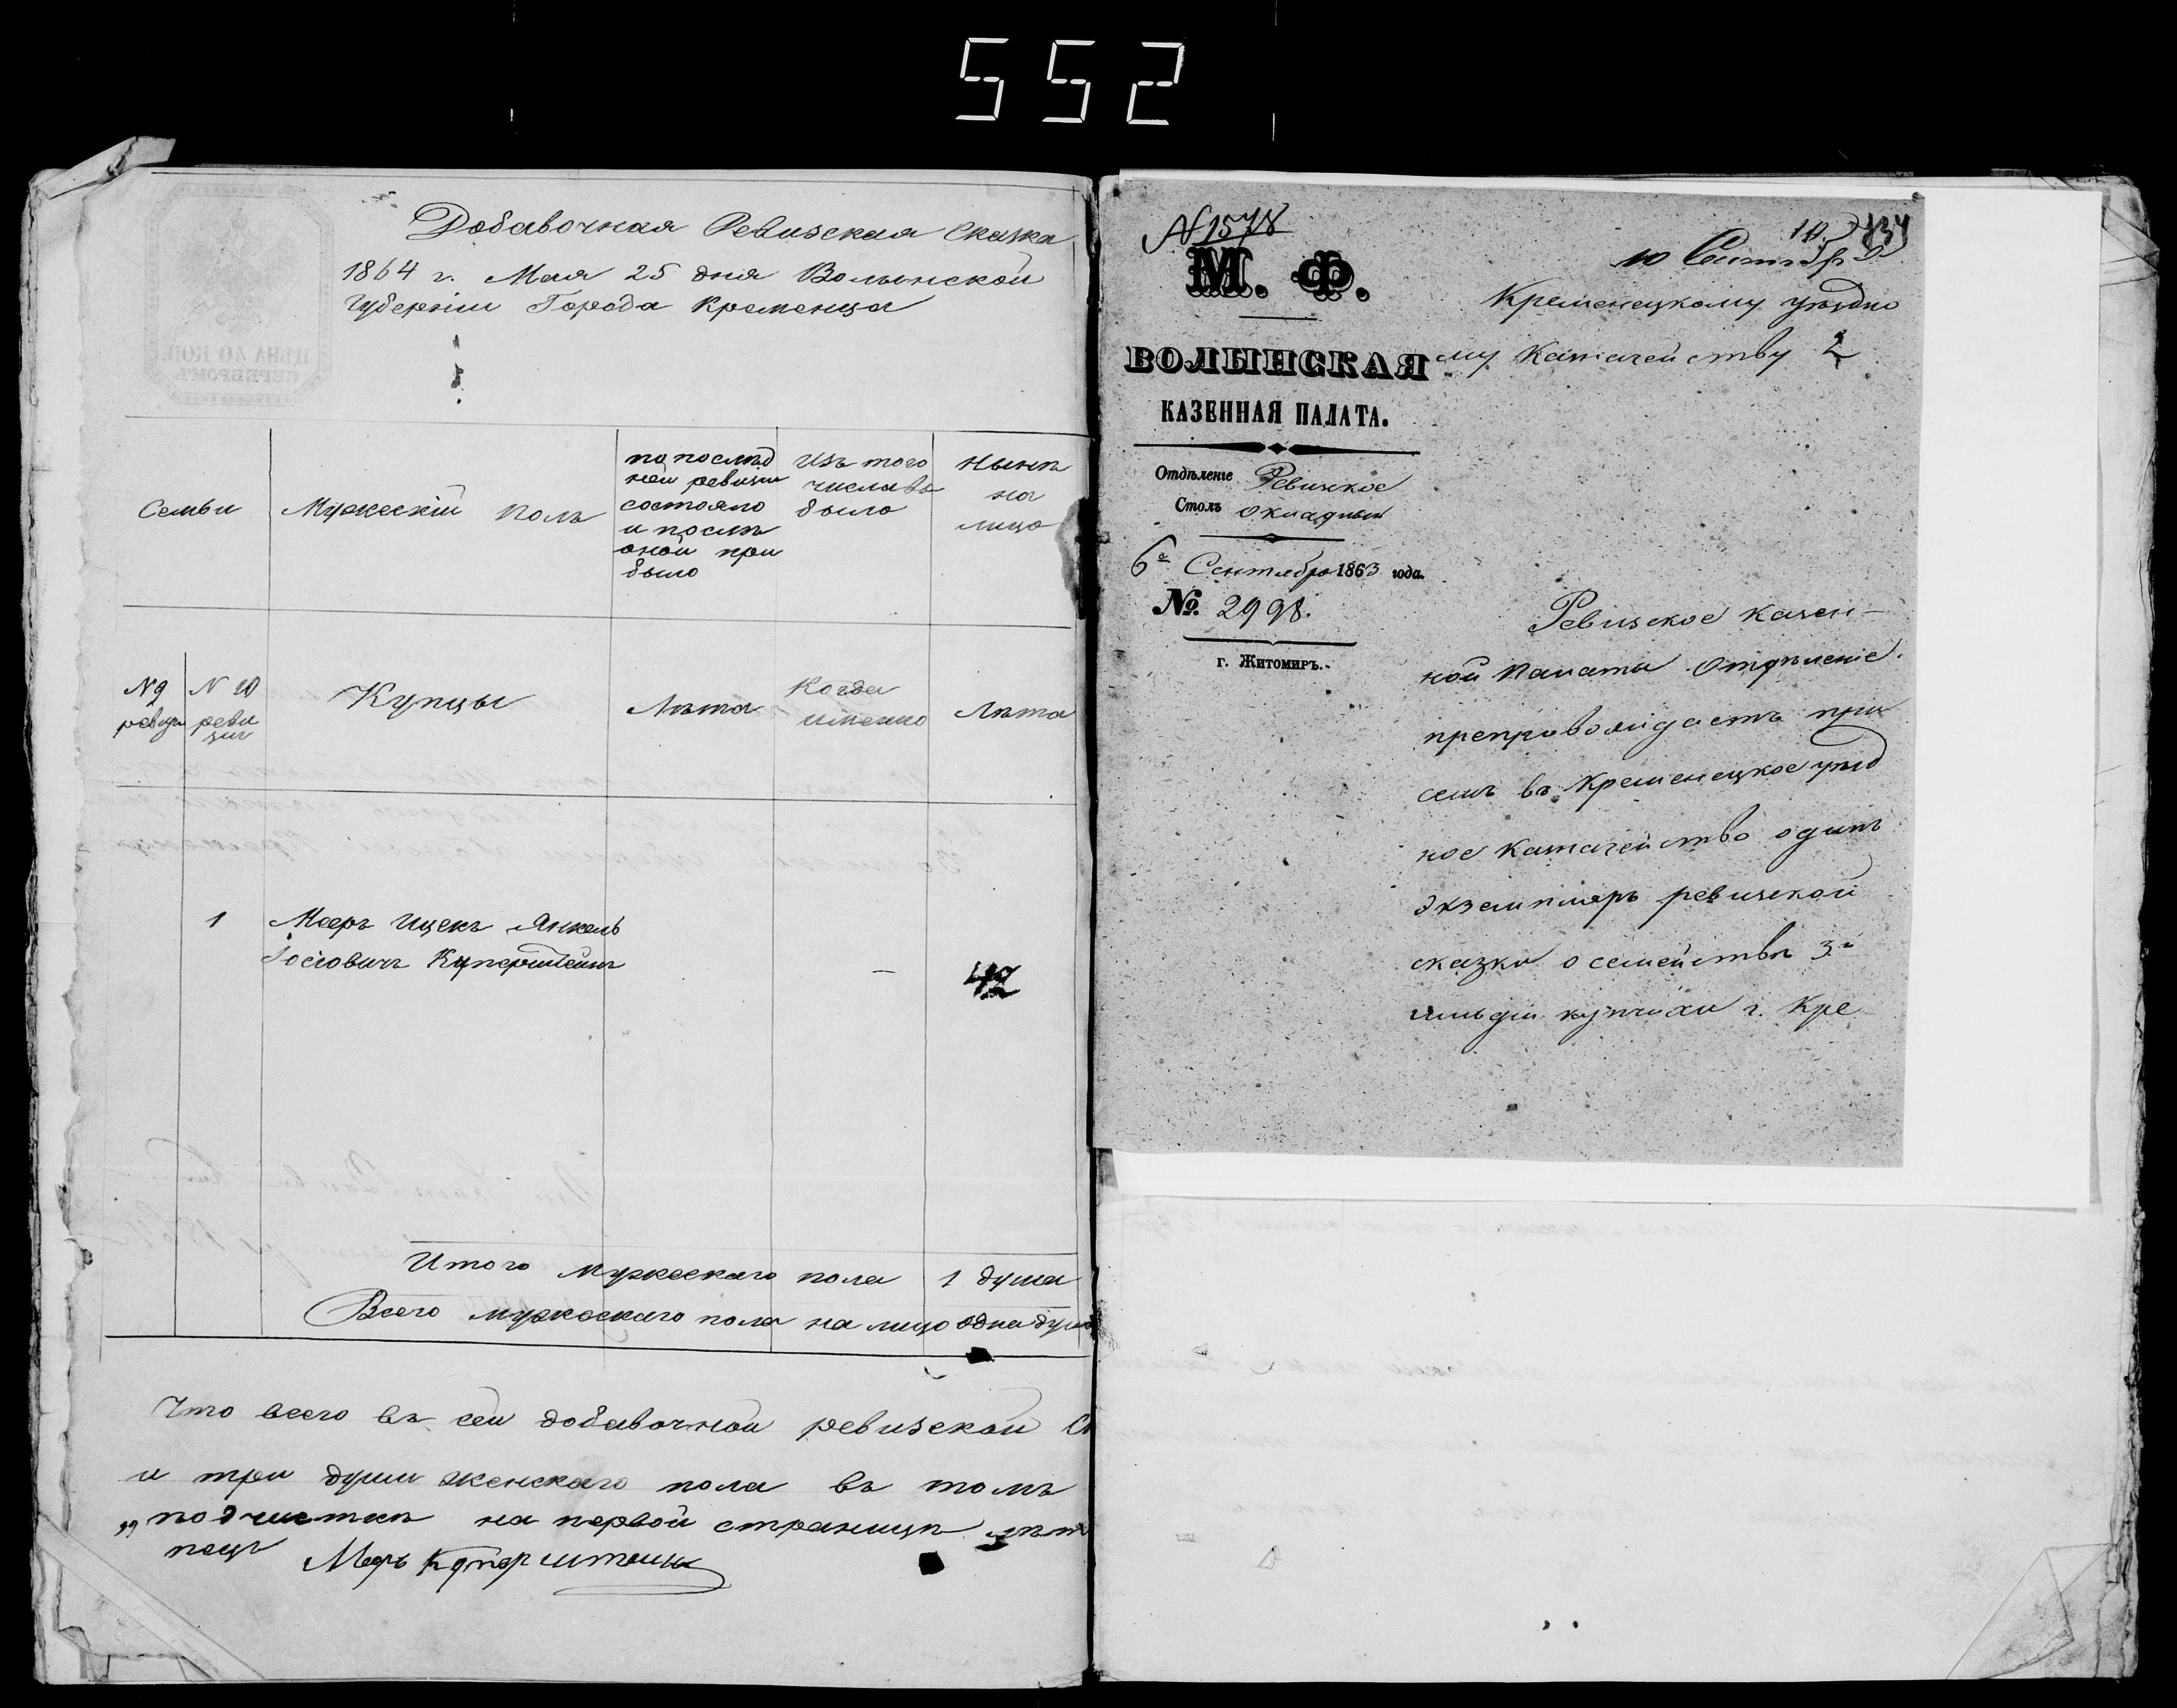 552
Добавочная Ревизская Сказка
1864 г. Мая 25 дня Волынской
Губерніи Города Кременца
ЦѢНА 40 КОП.
СЕРЕБРОМЪ
Семьи
Мужескій Полъ
по послѣд
ней ревизіи
состояло
и послѣ
оной при
было
Изъ того
числа вы
было
Нынѣ
на
лицо
№ 9 ревизіи
№ 10 реви
зіи
Купцы
Лѣта
Когда
именно
Лѣта
1 Мееръ Ицекъ Янкель
Іосіовичъ Куперштейнъ — 42
Итого мужескаго пола 1 душа
Всего мужескаго пола на лицо одна душа
Что всего въ сей добавочной ревизской С
и три души женскаго пола въ томъ
„подчисткѣ на первой страницѣ лѣт
пецъ Меръ Куперштеинъ
№ 1578
10 Сентября
434
М. Ф.
ВОЛЫНСКАЯ
КАЗЕННАЯ ПАЛАТА.
Отдѣленіе Ревизское
Столъ окладный
6го Сентября 1863 года.
№ 2998.
г. Житомиръ.
Кременецкому уѣздно
му Казначейству
Ревизское казен-
ной Палаты Отдѣленіе
препровождаетъ при
семъ въ Кременецкое уѣзд
ное Казначейство одинъ
экземпляръ ревизской
сказки о семействѣ 3й
гильдіи купчихи г. Кре